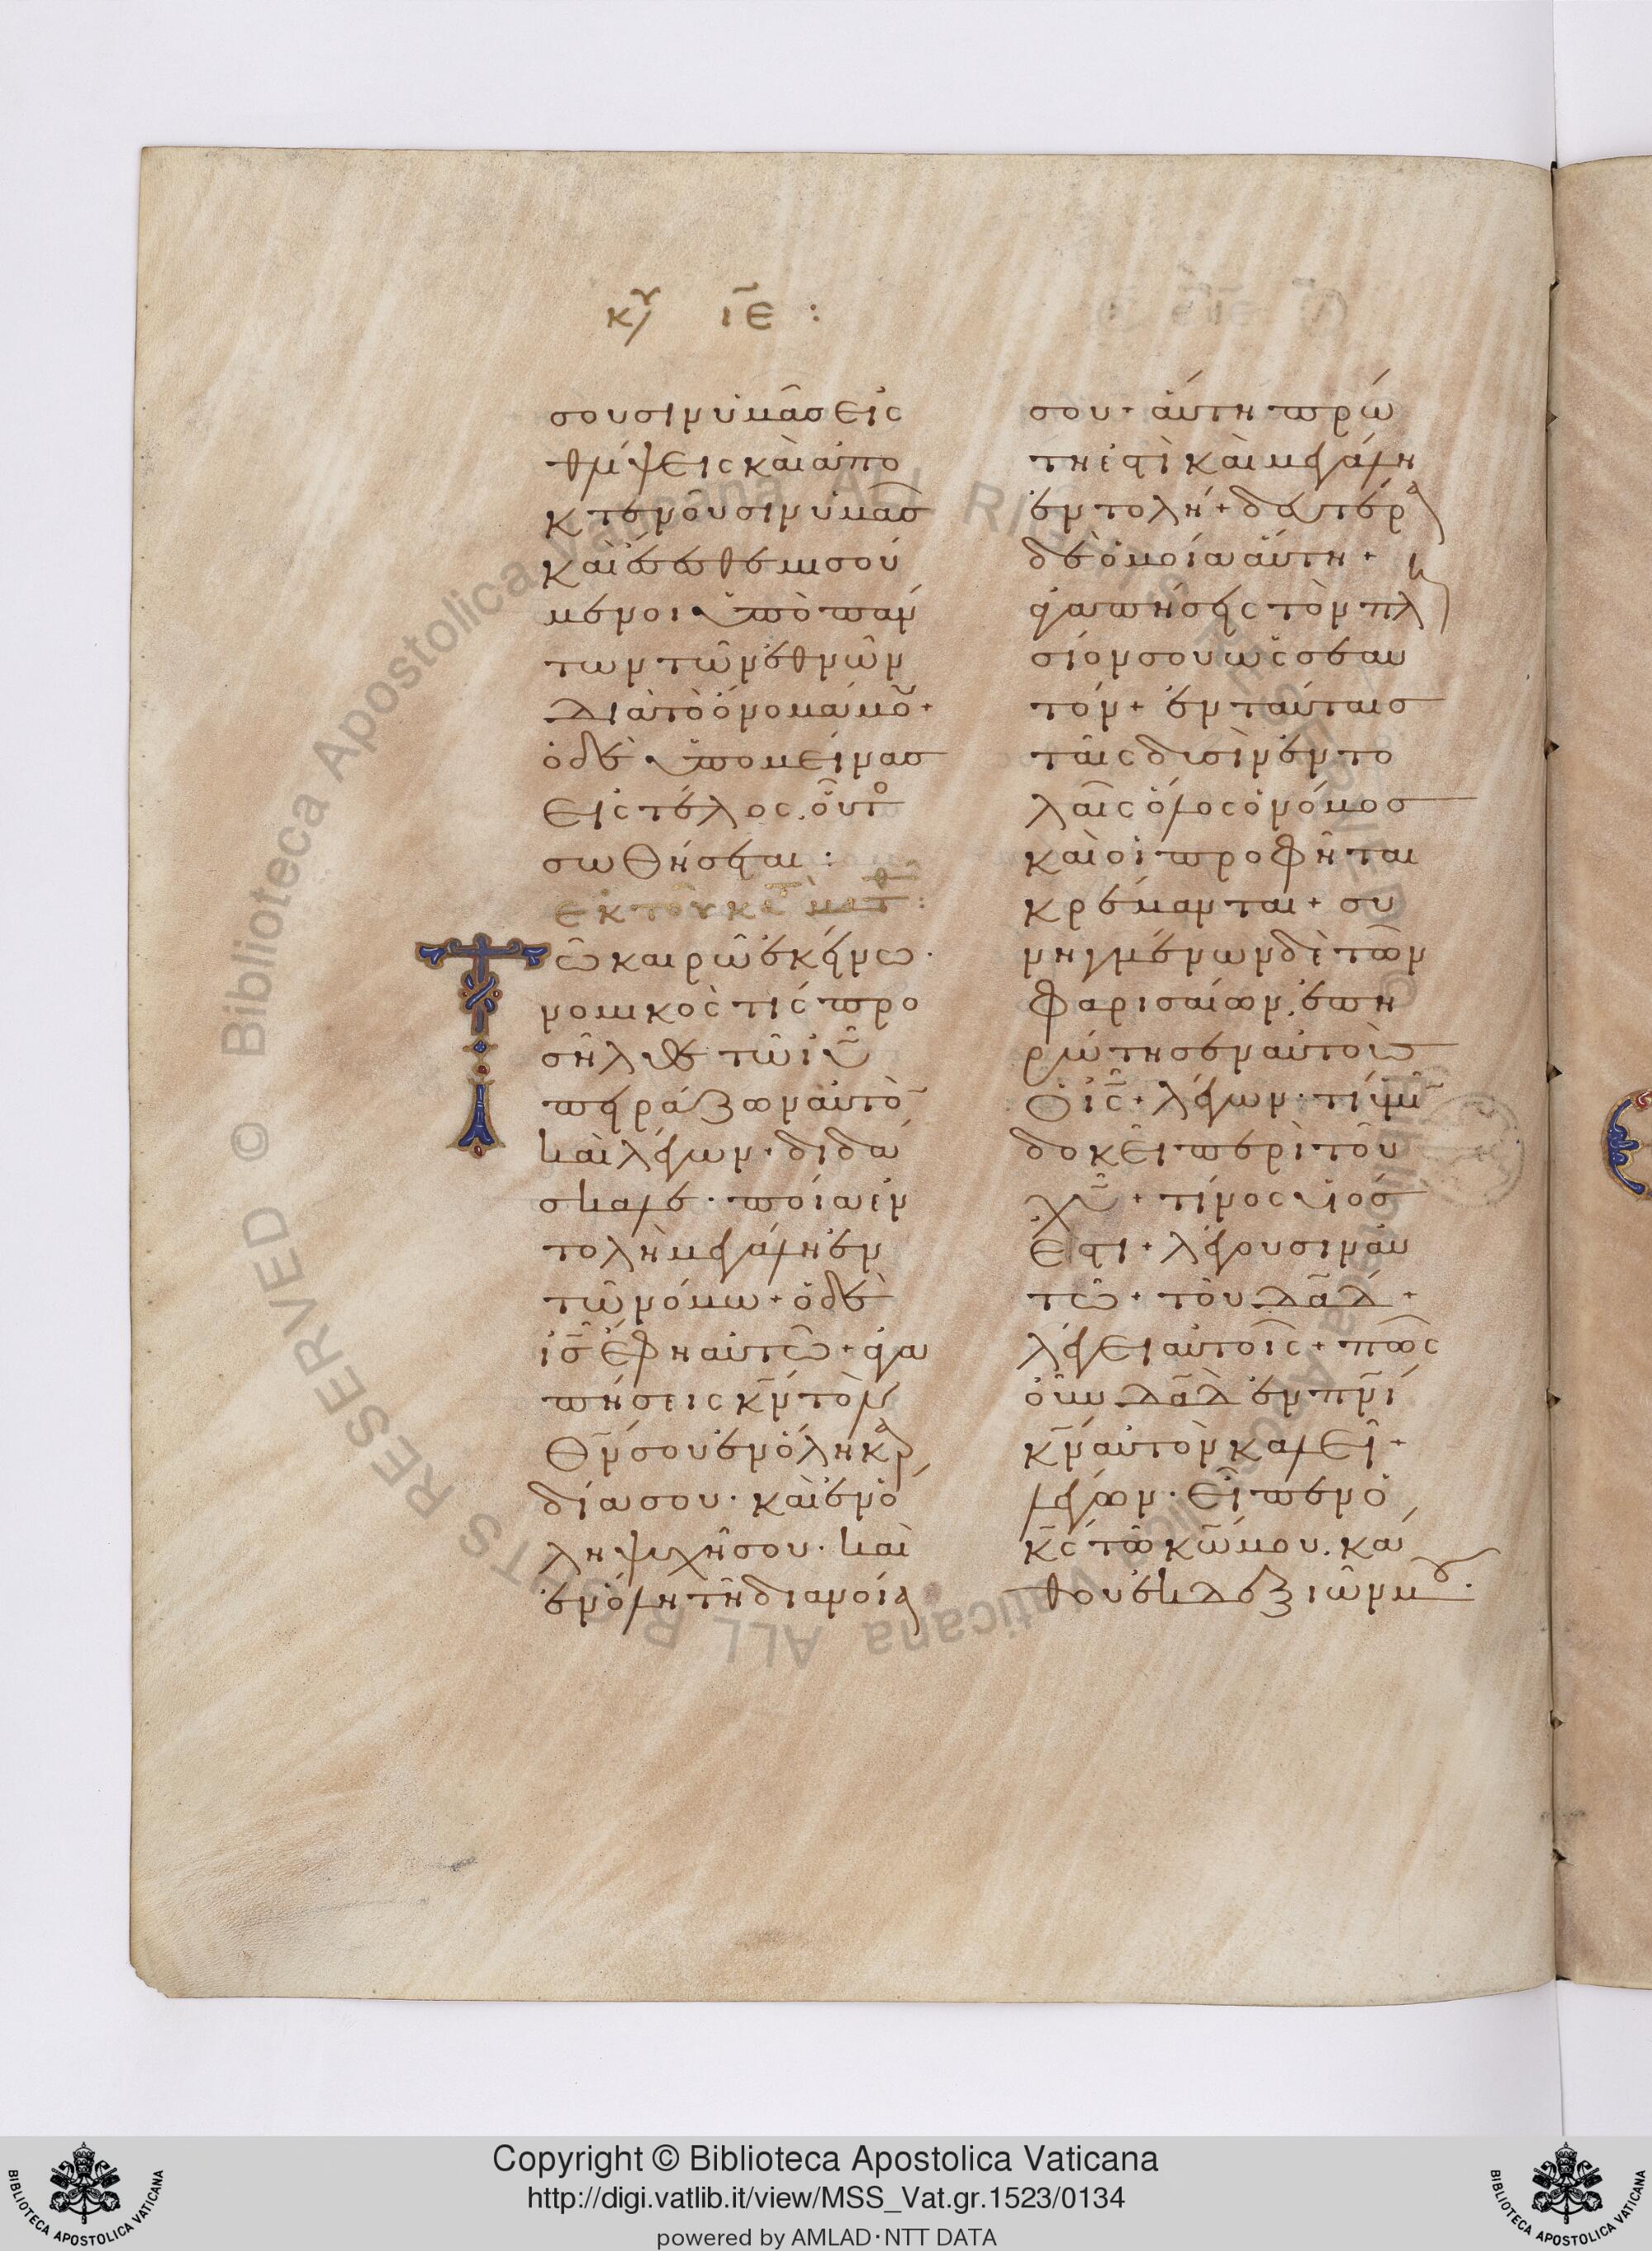 κυ ιε :
σουσιν ὑμᾶσ εἰς
θλίψεις καὶ ἀπο
κτενοῦσιν ὑμᾶσ
καὶ ἔσεσθε μισού
μενοι ὑπὸ πάν
των τῶν ἐθνῶν
διὰ τὸ ὄνομά μου +
ὁ δὲ ὑπομείνασ
εἰς τέλος. οὗτο
σωθήσεται :
ἐκ τοῦ κτ ματθ :
Τῶ καιρῶ ἐκείνω ·
νομικός τίς προ
σῆλθε τῶ ιυ
πειράζων αὐτὸ
καὶ λέγων · διδά
σκαλε · ποία ἐν
τολὴ μεγάλη ἐν
τῶ νόμω + ὁ δὲ
ισ ἔφη αὐτῶ + ἀγα
πήσεις κν τὸν
θν σου ἐν ὅλη καρ
δία σου · καὶ ἐν ὅ
λη ψυχῆ σου · καὶ
ἐν ὅλη τῆ διανοία
σου + αὕτη πρώ
τη ἐστὶ καὶ μεγάλη
ἐντολή + δευτέρα
δὲ ὁμοία αὕτη +
ἀγαπήσεις τὸν πλη
σίον σου ὡς σεαυ
τόν + ἐν ταύταισ
ταῖς δυσὶν ἐντο
λαῖς ὅλος ὁ νόμοσ
καὶ οἱ προφῆται
κρέμανται + συ
νηγμένων δὲ τῶν
φαρισαίων, ἐπη
ρώτησεν αὐτοὺσ
ὁ ις + λέγων · τί ὑμῖ
δοκεῖ περὶ τοῦ
χυ + τίνος υἱόσ
ἐστι + λέγουσιν αὐ
τῶ + τοῦ δαδ +
λέγει αὐτοῖς + πῶς
οὖν δαδ ἐν πνι
κν αὐτὸν καλεῖ +
λέγων · εἶπεν ὁ
κς τῶ κω μου. κά
θου ἐκ δεξιῶν μου ·
Copyright © Biblioteca Apostolica Vaticana
http://digi.vatlib.it/view/MSS_Vat.gr.1523/0134
powered by AMLAD·NTT DATA